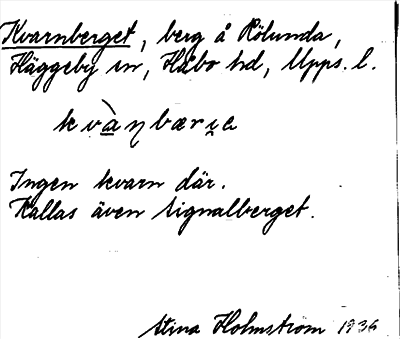 Kvarnberget, berg å Rölunda,
Häggeby sn, Håbo hd, Upps. l.
kvàŋbærɩ̯a
Ingen kvarn där.
Kallas även Signalberget.
Stina Holmström 1936